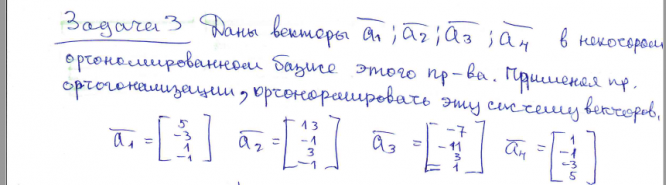 Задача 3 Даны векторы a̅1 ; a̅2 ; a̅3 ; a̅4 в некотором
ортономированном базисе этого пр-ва. Применяя пр.
ортогонализации, ортонормировать эту систему векторов.
a̅1 = [5 -3 1 -1] a̅2 = [13 -1 3 -1] a̅3 = [-7 -11 3 1] a̅4 = [1 -1 -3 5]